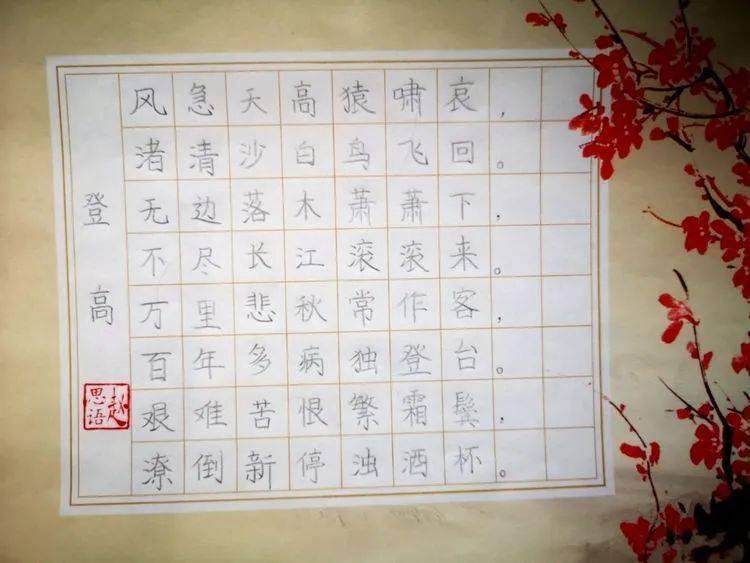 登高
风急天高猿啸哀，
渚清沙白鸟飞回。
无边落木萧萧下，
不尽长江滚滚来。
万里悲秋常作客，
百年多病独登台。
艰难苦恨繁霜鬓，
潦倒新停浊酒杯。
赵思语